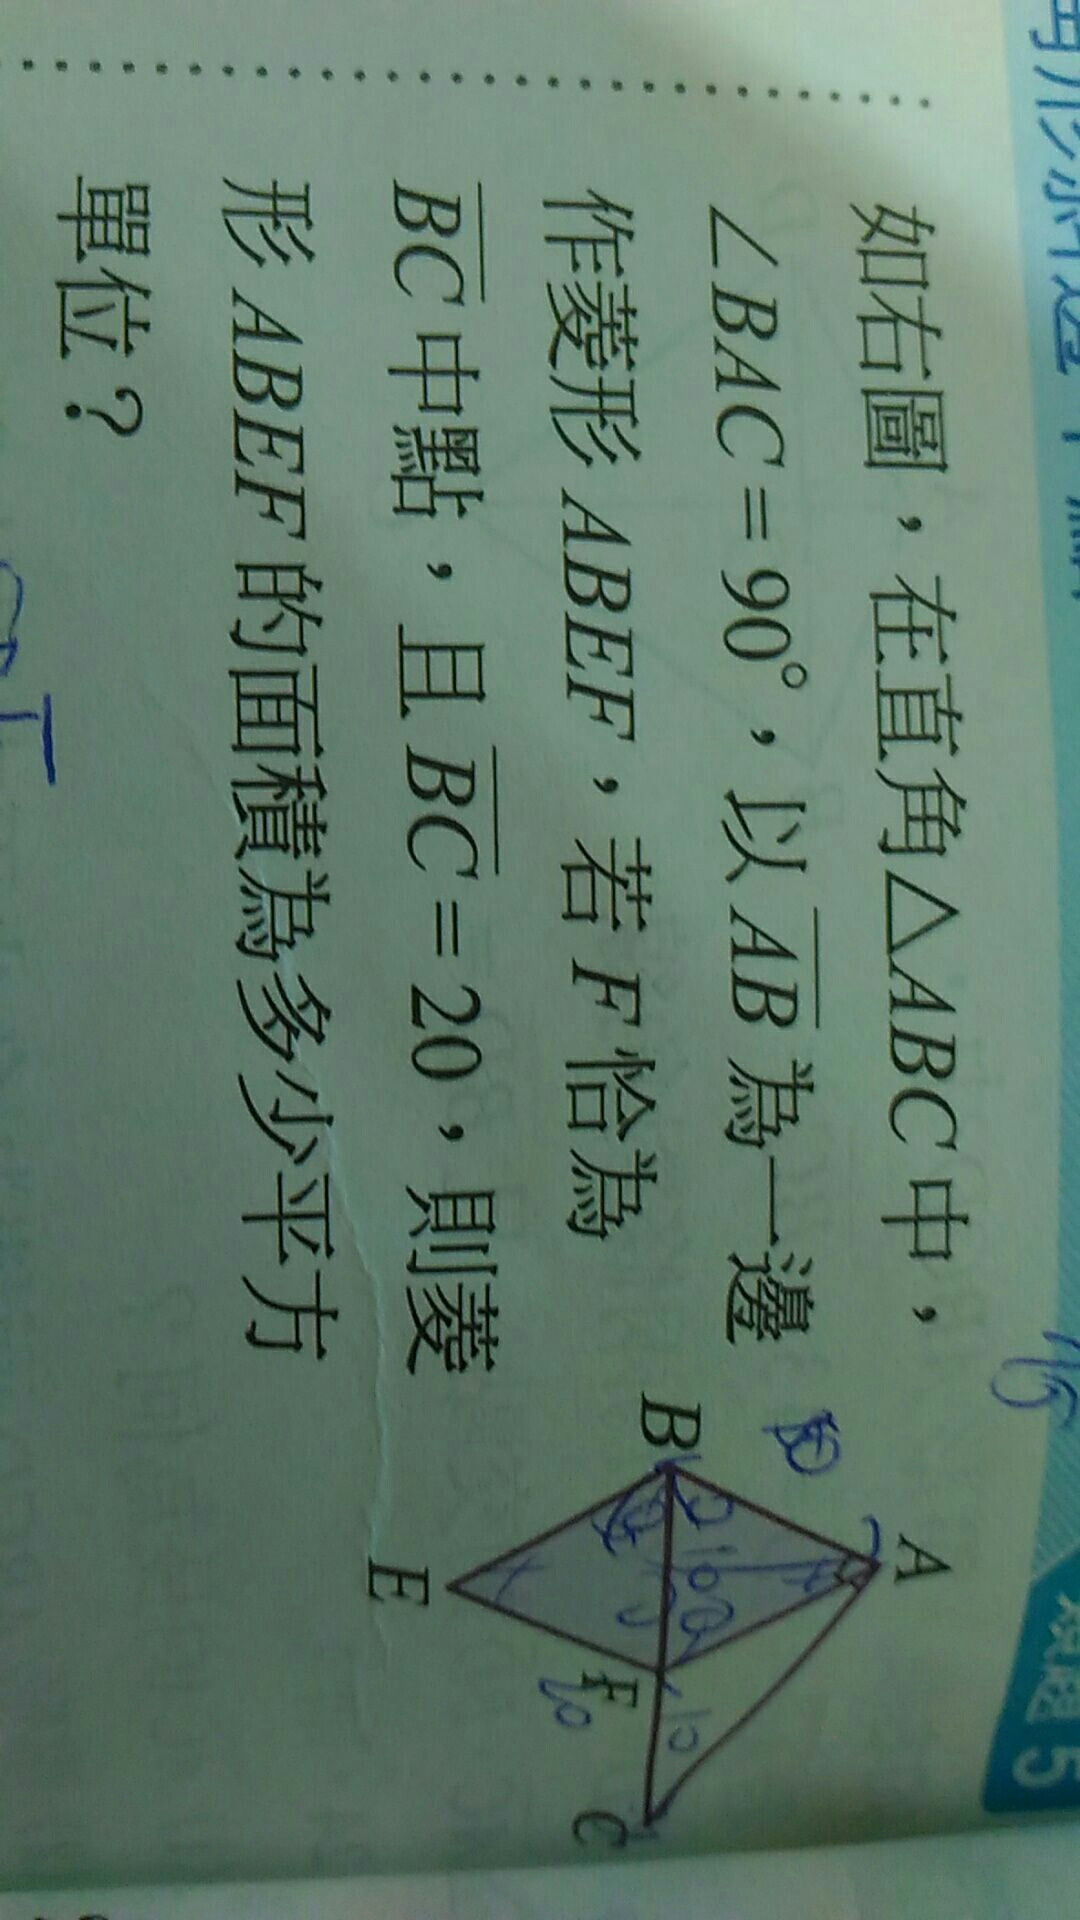 如右圖，在直角△ABC中，
∠BAC=90°，以AB為一邊
作菱形ABEF，若F恰為
BC中點，且BC=20，則菱
形ABEF的面積為多少平方
單位？
A
B
E
F
C
10
10
10
5